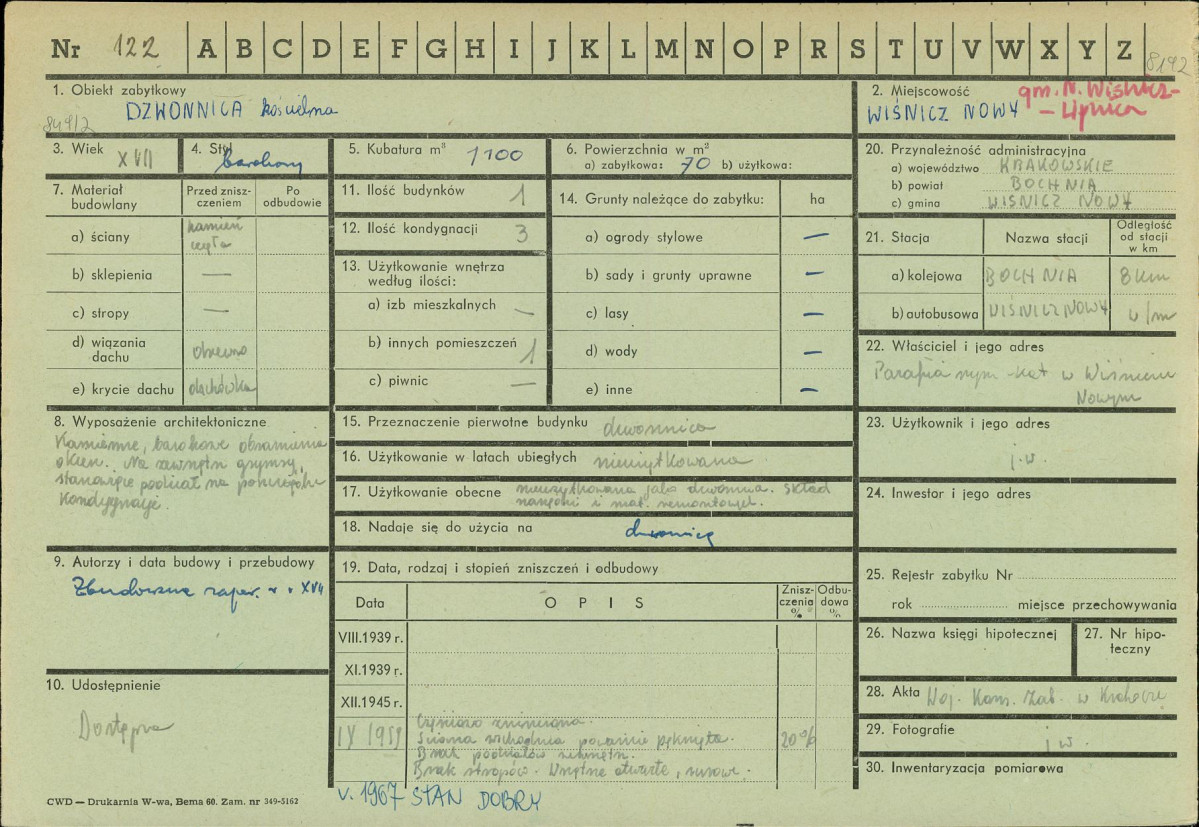 Nr 122 A B C D E F G H I J K L M N O P R S T U V W X Y Z 8192
1. Obiekt zabytkowy
DZWONNICA kościelna
849/2
2. Miejscowość gm. N. Wiśnicz-
WIŚNICZ NOWY - Lipnica
3. Wiek XVII
4. Styl barokowy
5. Kubatura m³ 1100
6. Powierzchnia w m²
a) zabytkowa: 70 b) użytkowa:
7. Materiał budowlany
Przed znisz-
czeniem
Po
odbudowie
a) ściany kamień
cegła
b) sklepienia —
c) stropy —
d) wiązania
dachu drewno
e) krycie dachu dachówka
8. Wyposażenie architektoniczne
Kamienne, barokowe obramienia
okien. Na zewnątrz gzymsy,
podział na poszczególne
Kondygnacje.
9. Autorzy i data budowy i przebudowy
Zbudowana zapew. w w XVII
10. Udostępnienie
Dostępna
11. Ilość budynków 1
12. Ilość kondygnacji 3
13. Użytkowanie wnętrza
według ilości:
a) izb mieszkalnych —
b) innych pomieszczeń 1
c) piwnic —
14. Grunty należące do zabytku: ha
a) ogrody stylowe —
b) sady i grunty uprawne —
c) lasy —
d) wody —
e) inne —
15. Przeznaczenie pierwotne budynku dzwonnica
16. Użytkowanie w latach ubiegłych nieużytkowana
17. Użytkowanie obecne nieużytkowana jako dzwonnica. Skład
narzędzi i mat. remontowych.
18. Nadaje się do użycia na dzwonnicę
19. Data, rodzaj i stopień zniszczeń i odbudowy
Data
O P I S
Znisz-
czenia
%
Odbu-
dowa
%
VIII.1939 r.
XI.1939 r.
XII.1945 r.
IX 1959
Ściana wschodnia poważnie pęknięta. 20%
Brak podziałów wewnętrz.
Brak stropów. Wnętrze otwarte, surowe.
V. 1967 STAN DOBRY
20. Przynależność administracyjna
a) województwo KRAKOWSKIE
b) powiat BOCHNIA
c) gmina WIŚNICZ NOWY
21. Stacja
Nazwa stacji
Odległość
od stacji
w km
a) kolejowa BOCHNIA 8 km
b) autobusowa WIŚNICZ NOWY w/m
22. Właściciel i jego adres
Parafia rzym-kat w Wiśniczu
Nowym
23. Użytkownik i jego adres
j.w.
24. Inwestor i jego adres
25. Rejestr zabytku Nr
rok miejsce przechowywania
26. Nazwa księgi hipotecznej
27. Nr hipo-
teczny
28. Akta Woj. Kons. Zab. w Krakowie
29. Fotografie j w.
30. Inwentaryzacja pomiarowa
CWD — Drukarnia W-wa, Bema 60. Zam. nr 349-5162